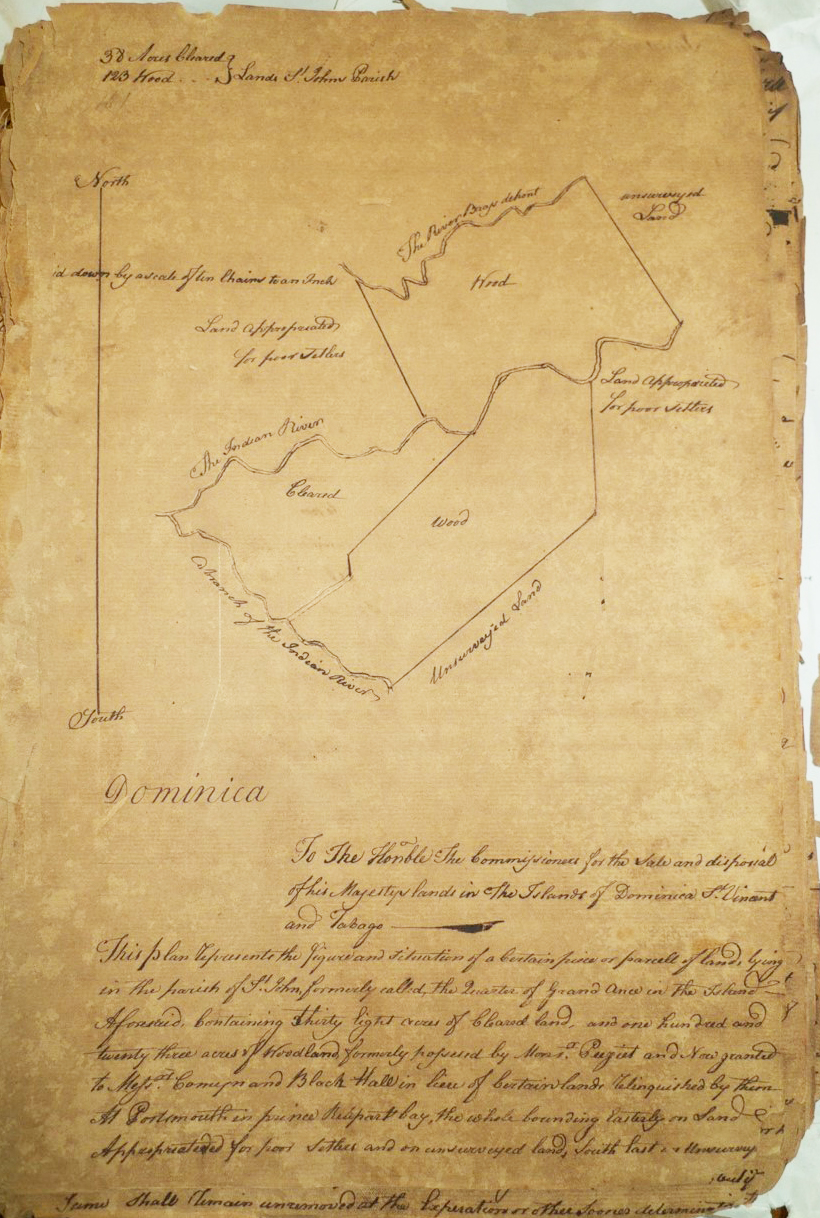 38 Acres Cleared
123 Wood } Lands St John Parish
North
unsurveyed
Land
The River Bays dehout
id down by a scale of ten Chains to an Inch
Wood
Land Appropriated
for poor Setlers
Land Appropriated
for poor Setlers
The Indian River
Cleared
Wood
A branch of the Indian River
Unsurveyed Land
South
Dominica
To The Honble The Commissioners for the Sale and disposial
of his Majestys lands in The Islands of Dominica St Vincent
and Tabago
This plan Represents the figure and situation of a Certain piece or parcell of land, lying
in the parish of St John, formerly called, the Quarter of Grand Ance in the Island
Aforesaid, Containing Thirty Eight acres of Cleared land, and one hundred and
twenty three acres of Woodland, formerly possesed by Monsr. and Now granted
to Messrs Comyn and Black Hall in lieu of Certain lands Relinquished by them
At Portsmouth in prince Ruspart bay, the whole bounding Easterly on Land
Appropriateded for poor Setlers and on unsurveyed land, South East on Unsurvey
Same Shall Remain unremoved at the Experation or other Sooner